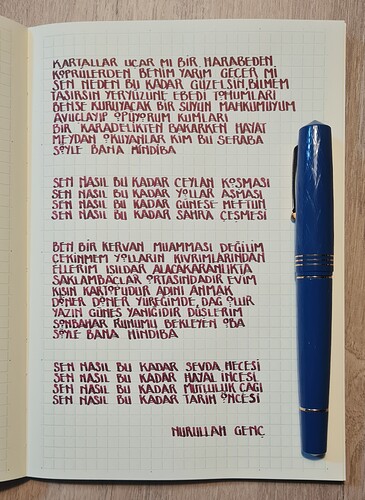 KARTALLAR UÇAR MI BİR HARABEDEN
KÖPRÜLERDEN BENİM YARIM GEÇER Mİ
SEN NEDEN BU KADAR GÜZELSİN, BİLMEM
TAŞIRSIN YERYÜZÜNE EBEDİ TOHUMLARI
BENSE KURUYACAK BİR SUYUN MAHKUMUYUM
AVUÇLAYIP ÖPÜYORUM KUMLARI
BİR KARADELİKTEN BAKARKEN HAYAT
MEYDAN OKUYANLAR KİM BU SERABA
SÖYLE BANA HİNDİBA
SEN NASIL BU KADAR CEYLAN KOŞMASI
SEN NASIL BU KADAR YOLLAR AŞMASI
SEN NASIL BU KADAR GÜNEŞE MEFTUN
SEN NASIL BU KADAR SAHRA ÇEŞMESİ
BEN BİR KERVAN MUAMMASI DEĞİLİM
ÇEKİNMEM YOLLARIN KIVRIMLARINDAN
ELLERİM IŞILDAR ALACAKARANLIKTA
SAKLAMBAÇLAR ORTASINDADIR EVİM
KIŞIN KARTOPUDUR ADINI ANMAK
DÖNER DÖNER YÜREĞİMDE, DAĞ OLUR
YAZIN GÜNEŞ YANIĞIDIR DÜŞLERİM
SONBAHAR RUHUMU BEKLEYEN OBA
SÖYLE BANA HİNDİBA
SEN NASIL BU KADAR SEVDA HECESİ
SEN NASIL BU KADAR HAYAL İNCESİ
SEN NASIL BU KADAR MUTLULUK ÇAĞI
SEN NASIL BU KADAR TARİH ÖNCESİ
NURULLAH GENÇ